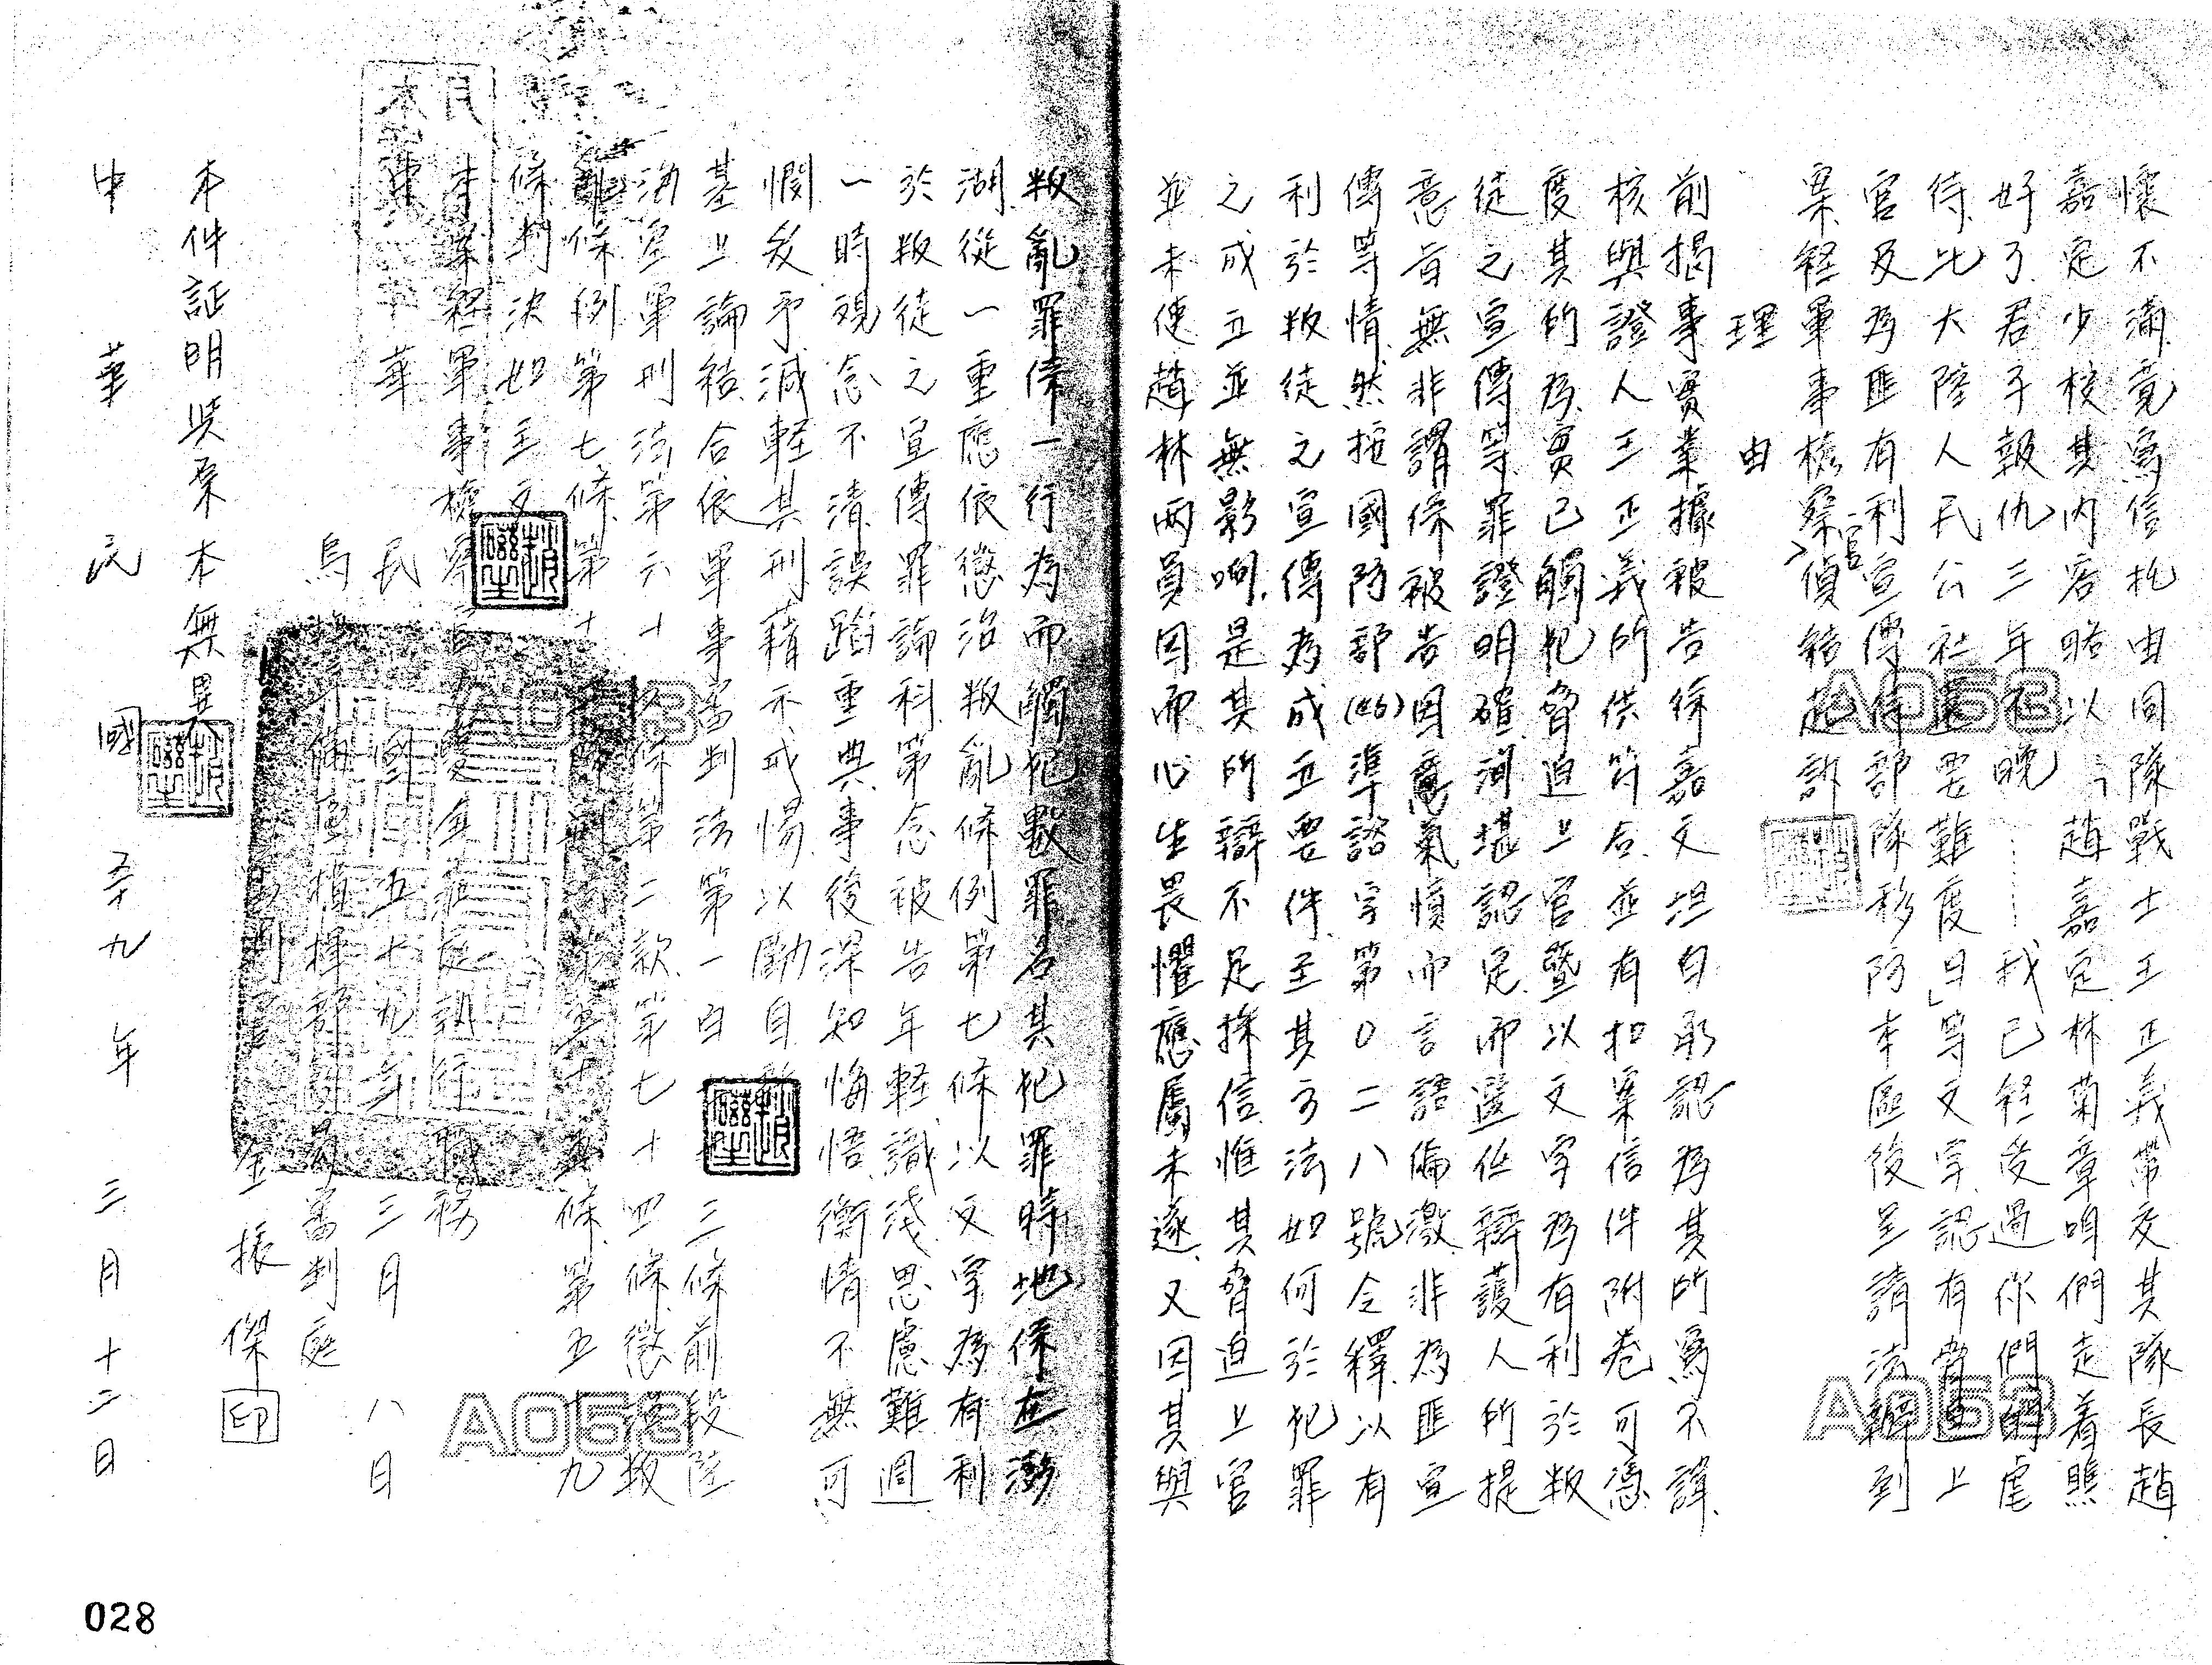 懷不滿竟寫信托由同隊戰士王正義帶交其隊長趙
嘉定少校其內容略以「趙嘉定林菊章咱們走着瞧
好了君子報仇三年不晚……我已經受過你們的虐
待比大陸人民公社還要難度日」等文字認有脅迫上
官及為匪有利宣傳徐部隊移防本區後呈請法辦到
案經軍事檢察官偵結起訴
理　由
前揭事實業據被告徐嘉文坦白承認為其所寫不諱
核與證人王正義所供符合並有扣案信件附卷可憑
度其的為實已觸犯脅迫上官暨以文字為有利於叛
徒之宣傳等罪證明確洵堪認定而選任辯護人所提
意旨無非謂係被告因意氣憤而言語偏激非為匪宣
傳等情然按國防部(46)準諮字第０二八號令釋以有
利於叛徒之宣傳為成立要件至其方法如何於犯罪
之成立並無影响是其所辯不足採信惟其脅迫上官
並未使趙林兩員因而心生畏懼應屬未遂又因其與
叛亂罪係一行為而觸犯數罪名其犯罪時地係在澎
湖從一重應依懲治叛亂條例第七條以文字為有利
於叛徒之宣傳罪論科第念被告年輕識淺思慮難週
一時觀念不清誤蹈重典事後深知悔悟衡情不無可
憫爰予減輕其刑藉示戒惕以勵自新
基上論結合依軍事審判法第一百七十三條前段陸
海空軍刑法第六十八條第二款第七十四條懲治叛
亂條例第七條第十條刑法第五十五條第五十九
條判決如主文
本案經軍事檢察官
執行職務
中華民國五十九年三月八日
馬
備區指揮部
審判庭
審判官 金振傑 印
本件証明與原本無異
中華民國五十九年三月十二日
A053
A053
A053
A053
028